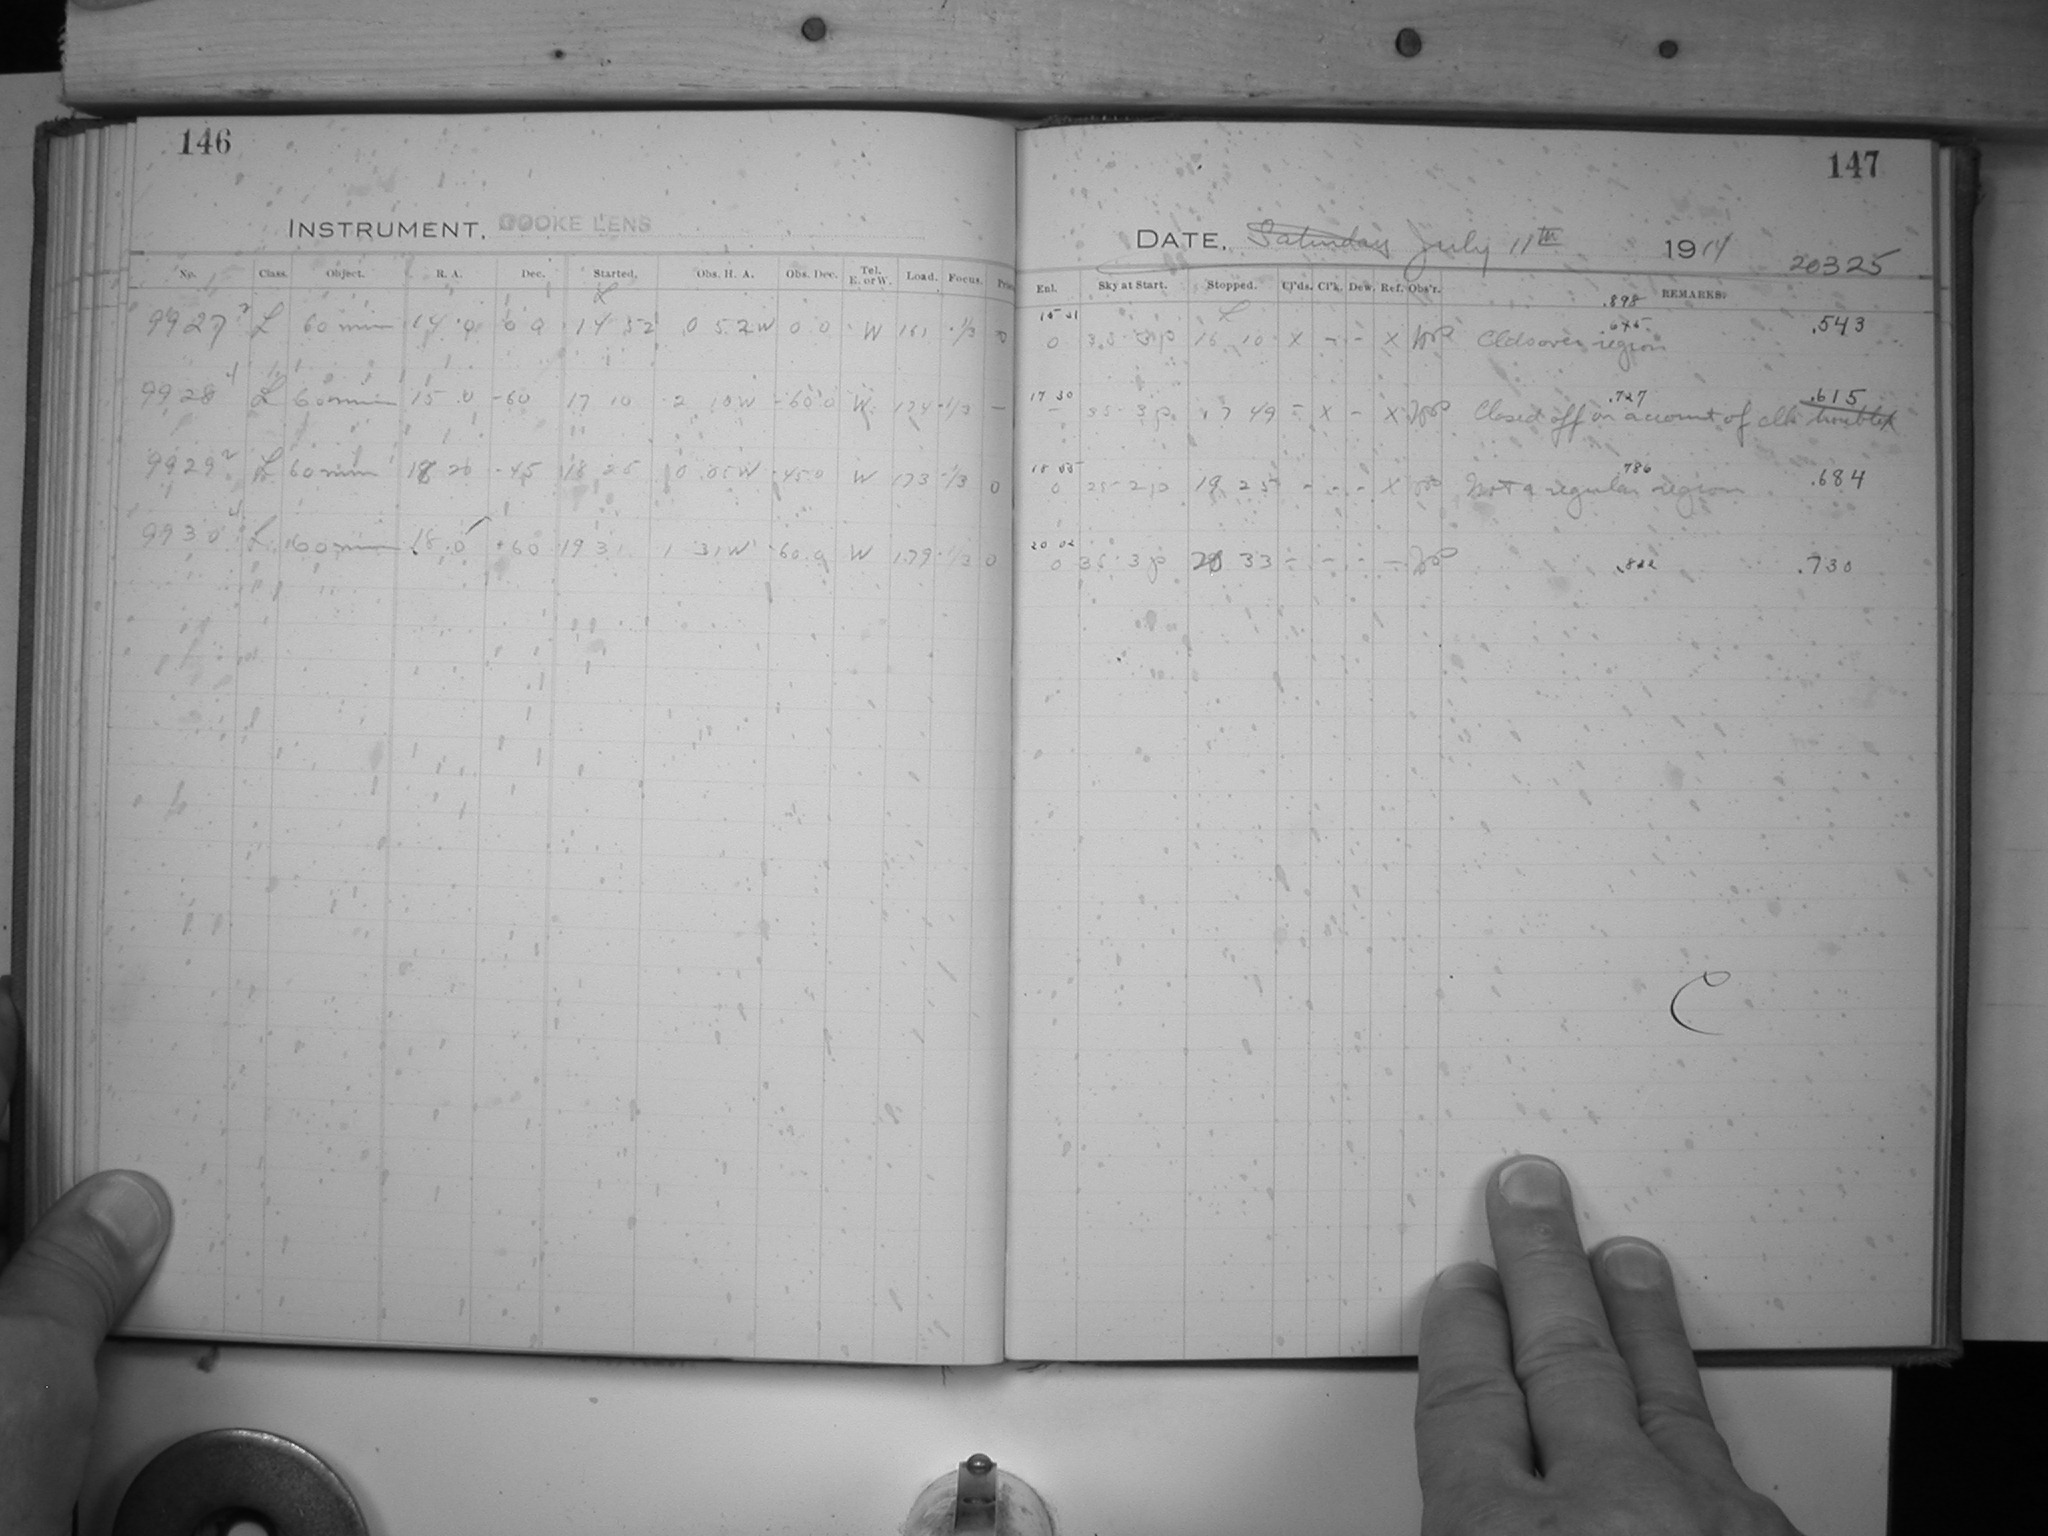 146
INSTRUMENT. COOKE LENS
No. Class. Object. R. A. Dec. Started. Obs. H. A. Obs. Dec. Tel. E. or W. Load. Focus.
L
9927 2 L 60 min 14 .0 0 0 14 52 0 52 W 0 0 W 161 -1/3
9928 L 60 min 15 .0 -60 17 10 2 10 W -60.0 W 174 -1/3 -
9929 2 L 60 min 18 20 -45 18 25 0 05 W -45.0 W 173 -1/3 0
9930 L 60 min 18.0 -60 19 31 1 31 W -60.0 W 179 -1/3 0
147
DATE, Saturday July 11th 1914
20325
Enl. Sky at Start. Stopped. Cl'ds. Cl'k. Dew. Ref. Obs'r. REMARKS.
.898
15 31 .645
0 35-3p 16 10 X - - X Clds over region .543
17 30 .727 .615
- 35-3p 17 49 - X - X Closed off on account of clk trouble
18 55 .786
0 25-2p 19 25 - - - X Not a regular region .684
20 02
0 35-3p 20 33 - - - - .822 .730
C